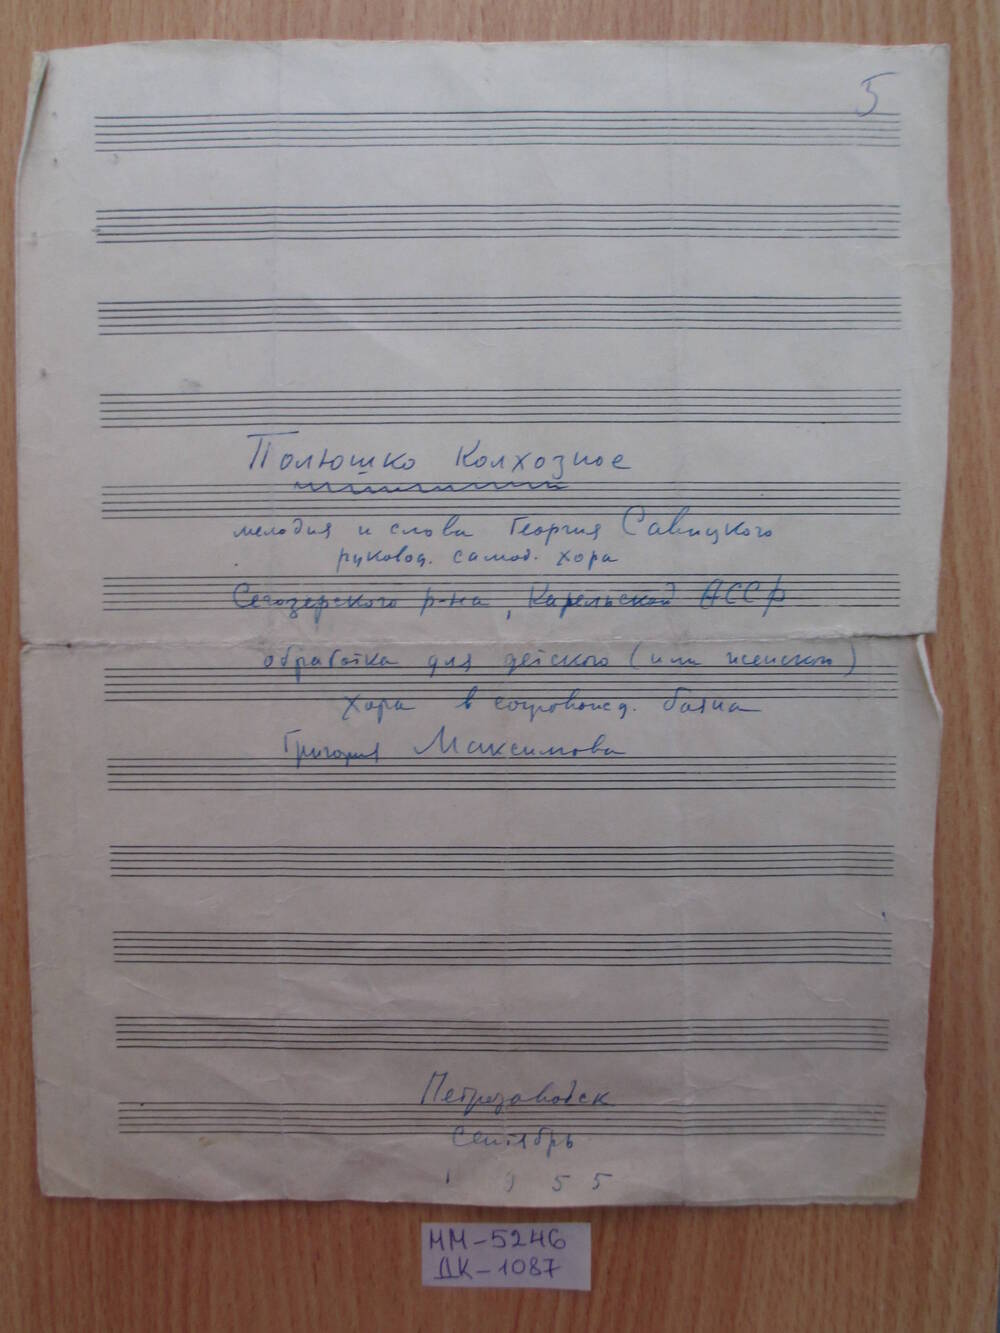 5
Полюшко Колхозное
мелодия и слова Георгия Савицкого
руковод. самод. хора
Сегозерского р-на, Карельской АССР
обработка для детского (или женского)
хора в сопровожд. баяна
Григория Максимова
Петрозаводск
Сентябрь
1955
ММ-5246
ДК-1087